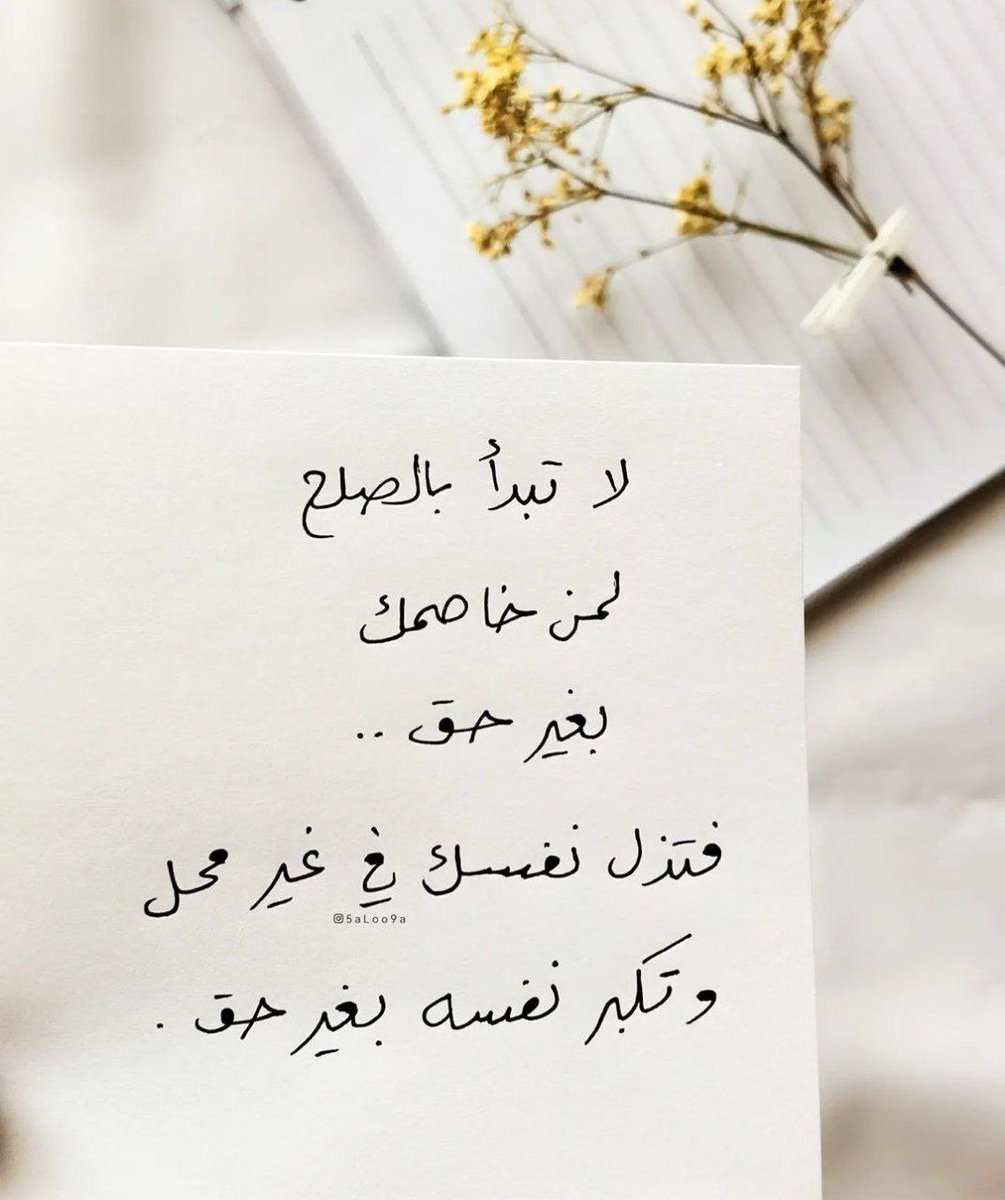 لا تبدأ بالصلح
لمن خاصمك
بغير حق ..
فتذل نفسك في غير محل
@5aLoo9a
وتكبر نفسه بغير حق .